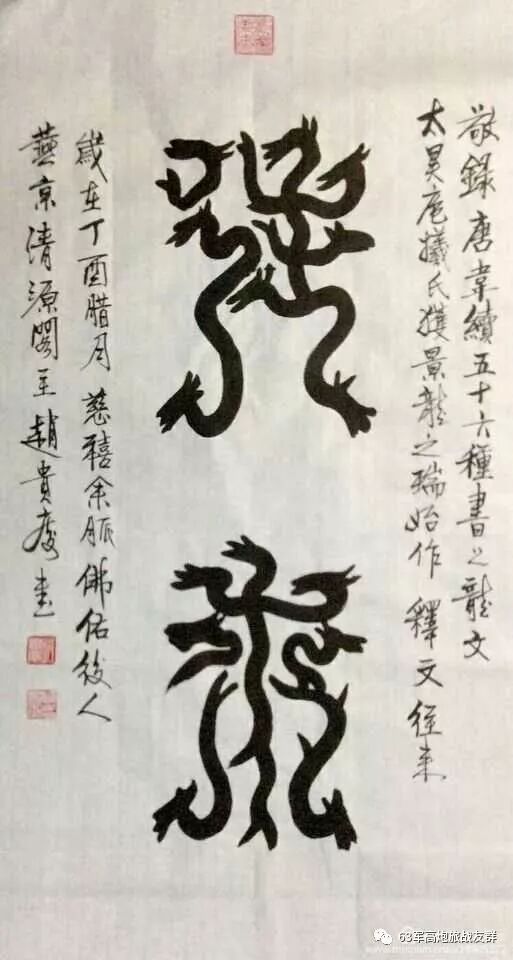 敬錄唐韋續五十六種書之龍文
太昊庖犧氏獲景龍之瑞始作 釋文 徃来
歲在丁酉腊月 慈禧余脈佛佑後人
燕京清源閣主趙貴慶書
63军高炮旅战友群